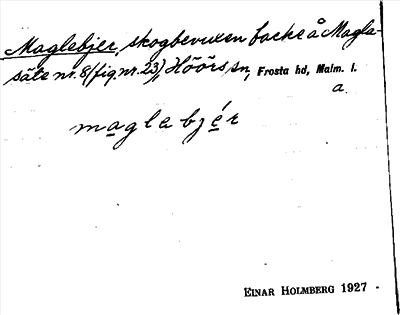 Maglebjer, skogbevuxen backe å Magla-
säte nr. 8 (fig. nr. 23), Höörs sn, Frosta hd, Malm. l.
a.
maglebjér
EINAR HOLMBERG 1927